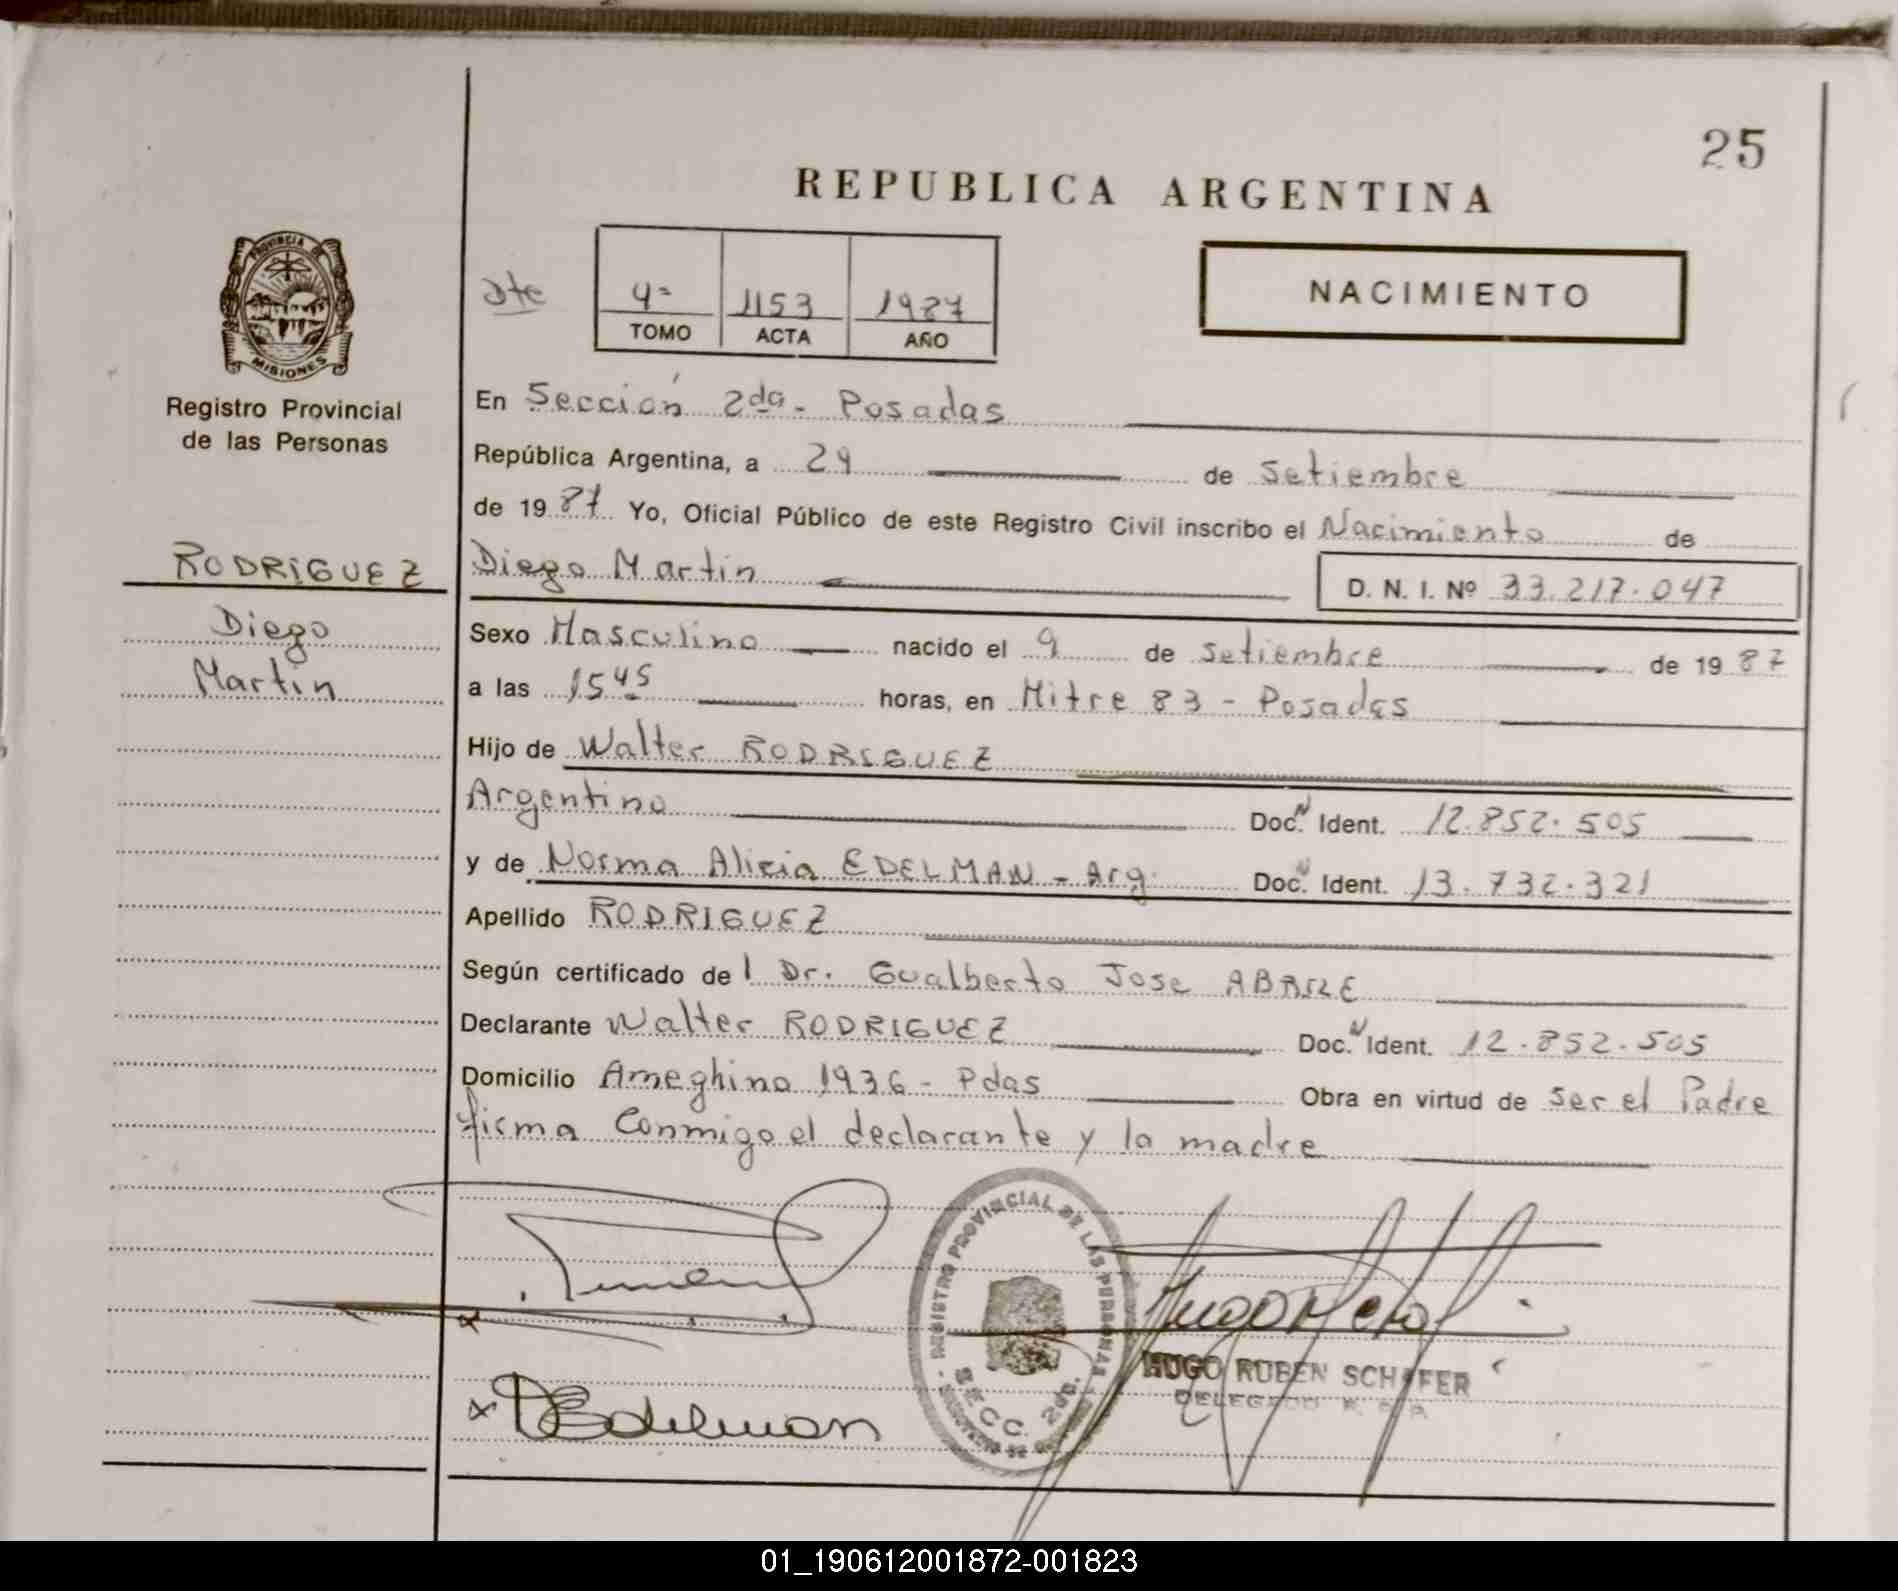 25
REPUBLICA ARGENTINA
PROVINCIA DE
MISIONES
Registro Provincial
de las Personas
Dte
4º 1153 1987
TOMO ACTA AÑO
NACIMIENTO
En Sección 2da - Posadas
República Argentina, a 29 de Setiembre
de 1987 Yo, Oficial Público de este Registro Civil inscribo el Nacimiento de
RODRIGUEZ
Diego Martin
D. N. I. Nº 33.217.047
Diego
Martin
Sexo Masculino nacido el 9 de setiembre de 1987
a las 15 45 horas, en Mitre 83 - Posadas
Hijo de Walter RODRIGUEZ
Argentino Doc. N Ident. 12.852.505
y de Norma Alicia EDELMAN - Arg. Doc. N Ident. 13.732.321
Apellido RODRIGUEZ
Según certificado de l Dr. Gualberto Jose ABRILE
Declarante Walter RODRIGUEZ Doc. N Ident. 12.852.505
Domicilio Ameghino 1936 - Pdas Obra en virtud de ser el Padre
firma Conmigo el declarante y la madre
REGISTRO PROVINCIAL DE LAS PERSONAS
SECC. 2da.
x
x Edelman
HUGO RUBEN SCHAFER
DELEGADO
01_190612001872-001823